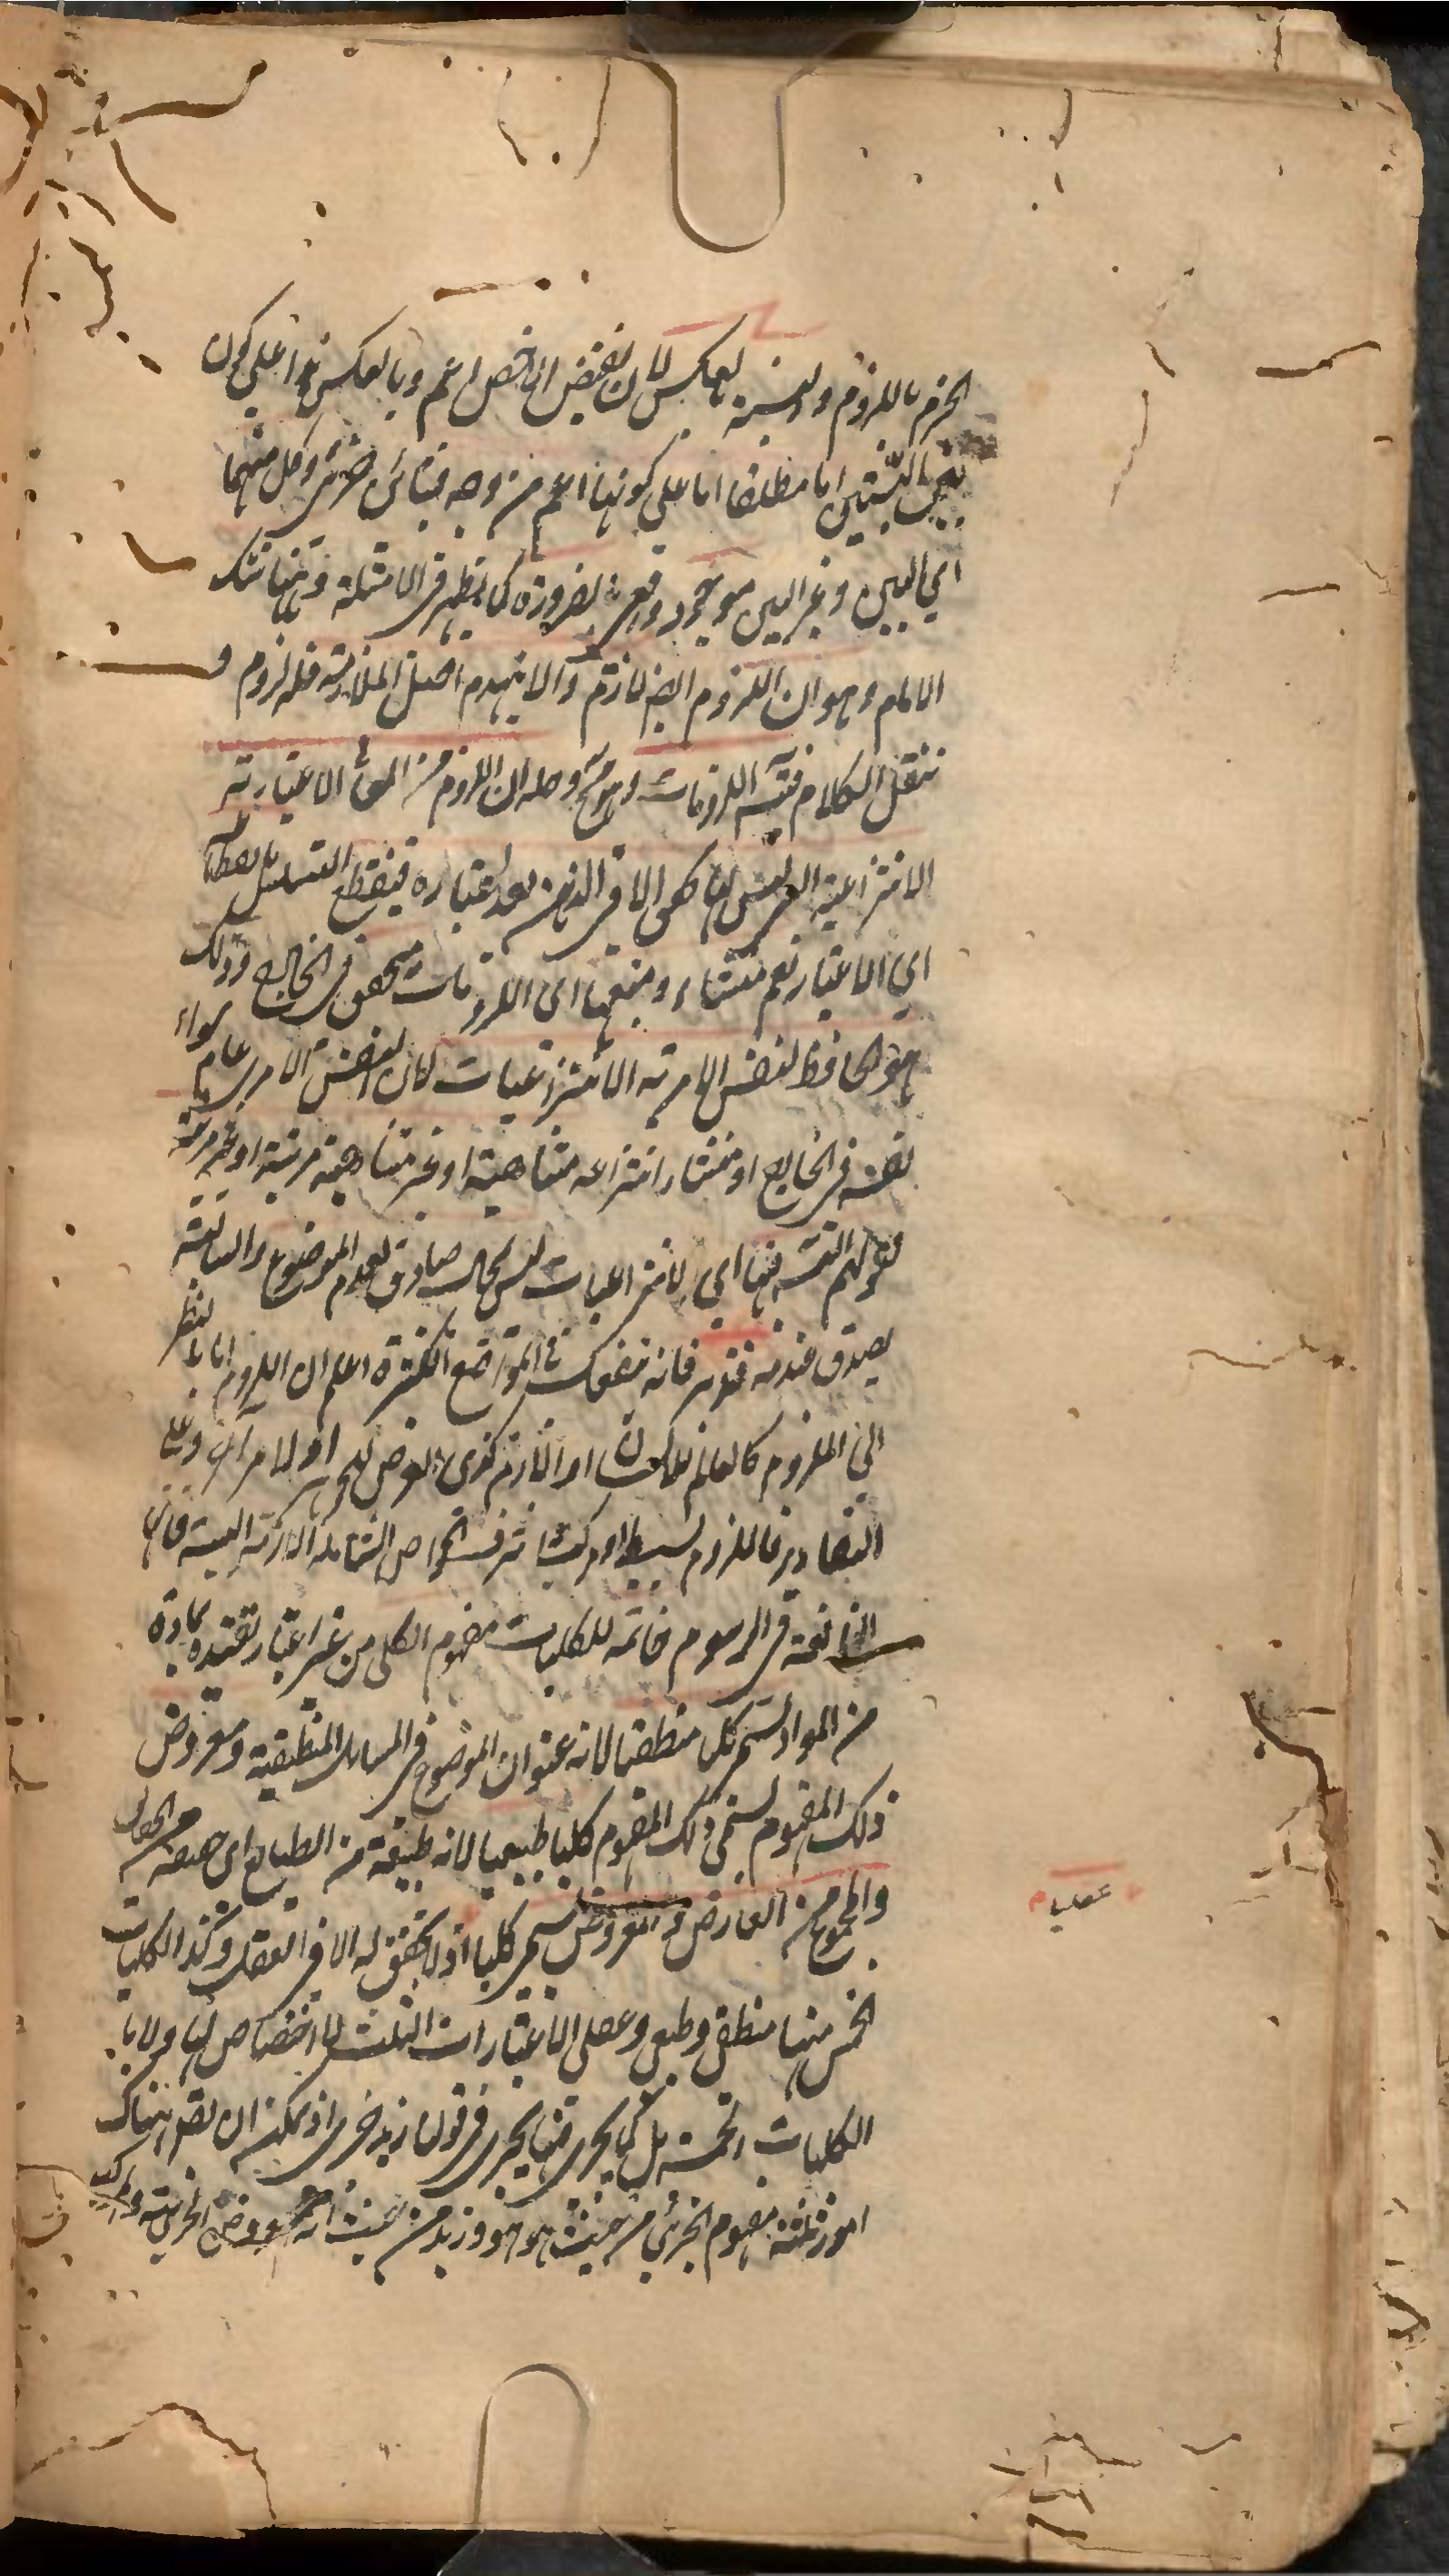 الجزم باللزوم والنسبة بالعكس لان نقيض الاخص اعم وبالعكس هذا على كون
بين النسبتين اما مطلقا اما على كونها اعم من وجه فتباين جزئى وكل منهما
اي البين وغير البين موجود بالضرورة كما يظهر فى الامثلة وههنا شك
الامام وهو ان اللزوم ايض لازم والا ينهدم اصل الملازمة فله لزوم و
ننقل الكلام فتسه اللزومات وهو مح وحله ان اللزوم من المعانى الاعتبارية
الانتزاعية التى ليس لها تحقق الا فى الذهن بعد اعتباره فينقطع التسلسل بانقطاعه
اي الاعتبار نعم منشاء ومنبعها اى اللزومات متحقق فى الخارج وذلك
هو الحافظ لنفس الامرية الانتزاعيات لان نفس الامر عام سواء
نفسه فى الخارج او منشاء انتزاعه متناهية او غير متناهية مرتبة او غير مرتبة
فقولهم التسه فيها اي الانتزاعيات ليس بمحال صادق لعدم الموضوع والسالبة
يصدق عنده فتدبر فانه ينفعك فى المواضع الكثيرة اعلم ان اللزوم اما بالنظر
الى الملزوم كالعالم للامكان او اللازم كذى العرض للجوهر او لامر آخر وعلى
التقادير فاللزوم بسيط او مركب شرف الخواص الشاملة اللازمة البينة فانها
النافعة فى الرسوم خاتمه للكليات مفهوم الكلى من غير اعتبار تقييده بمادة
من المواد يسمى كليا منطقيا لانه عنوان الموضوع فى المسايل المنطقية ومعروض
ذلك المفهوم يسمى ذلك المفهوم كليا طبيعيا لانه طبيعة من الطبايع اى حقيقة من الحقايق
والمجموع من العارض والمعروض يسمى كليا اذ لا تحقق له الا فى العقل وكذا الكليات
عقليا
الخمس منها منطقى وطبعى وعقلى الاعتبارات الثلث لا اختصاص لها ولا با
الكليات الخمسة بل كما يجرى فيها يجرى فى قولنا زيد جزئى اذ يمكن ان يقر هناك
امور ثلثة مفهوم الجزئي من حيث هو هو وزيد من حيث انه معروض الجزئية والمركب